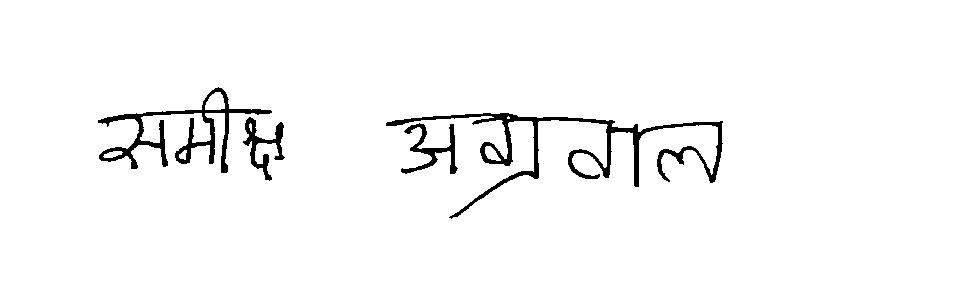 समीक्ष अग्रवाल